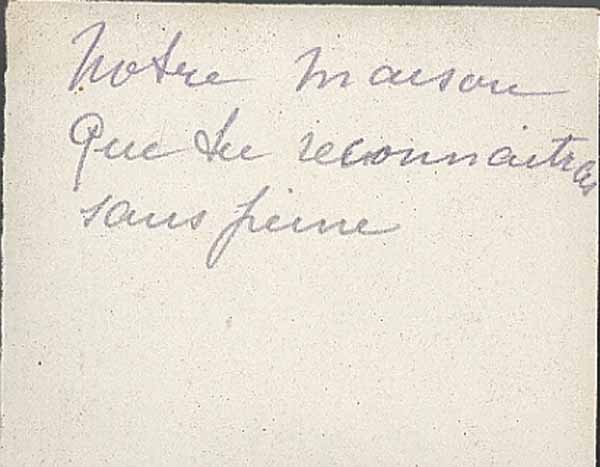 Notre maison
Que tu reconnaitras
sans peine